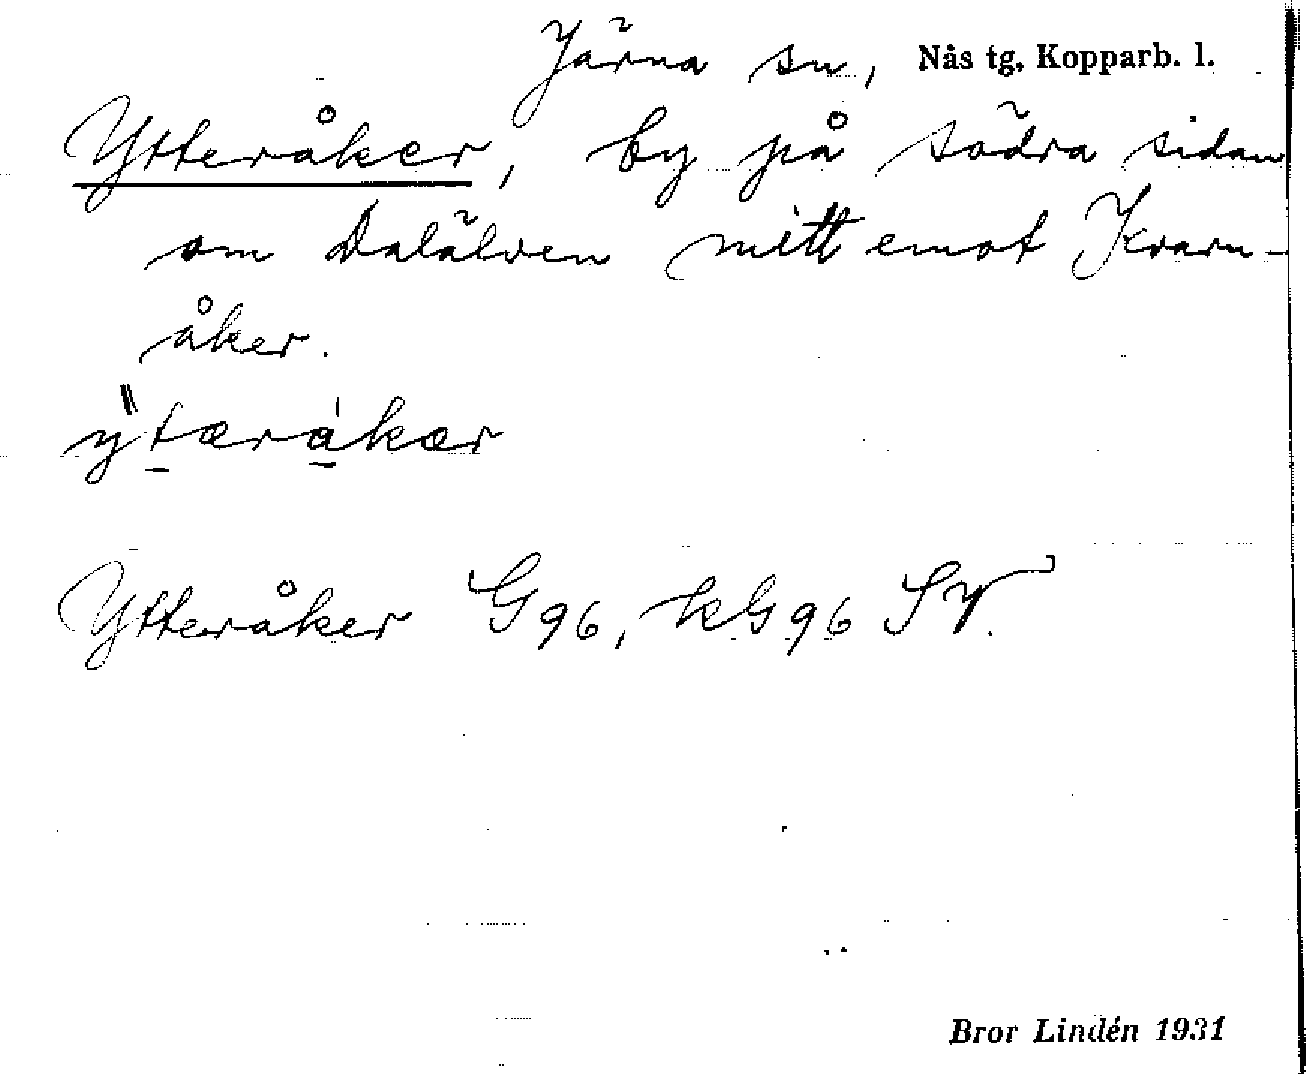 Järna sn, Nås tg, Kopparb. l.
Ytteråker, by på södra sidan
om Dalälven mitt emot Kvarn-
åker.
ỳ̎tæråkær
Ytteråker G96, kG96 SV.
Bror Lindén 1931